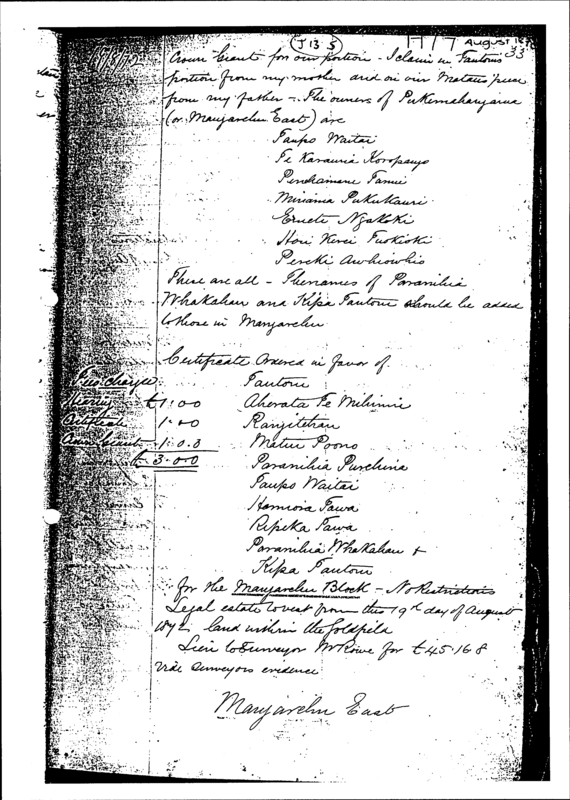 J 13 5
H/7 August 1872
33
Crown Grants for our portion - I claim in Tantoru's
portion from my mother and on our Matau's piece
from my father - The owners of Pukemahangarua
(or Mangarehu East) are
Taupo Waitai
Te Karauria Koropango
Perehamene Tamu
Miriama Pukukauri
Erueti Ngakoki
Hori Kerei Tuokioki
Pereki Awhiowhio
These are all - The names of Paranihia
Whakahau and Kipa Tantoru should be added
to those in Mangarehu
Certificate Ordered in favor of
Fees charge Tantoru
Hearing £1:00 Aherata Te Mihinui
Certificate 1:00 Rangitetau
Crown Grant 1.0.0 Matiu Poono
£3.0.0 Paranihia Purehina
Taupo Waitai
Hamiora Tawa
Ripeka Tawa
Paranihia Whakahau &
Kipa Tantoru
for the Mangarehu Block - No Restrictions
Legal estate to vest from this 19th day of August
land within the Goldfield
Lien to Surveyor Mr Rowe for £45.16.8
Vide Surveyors evidence
Mangarehu East